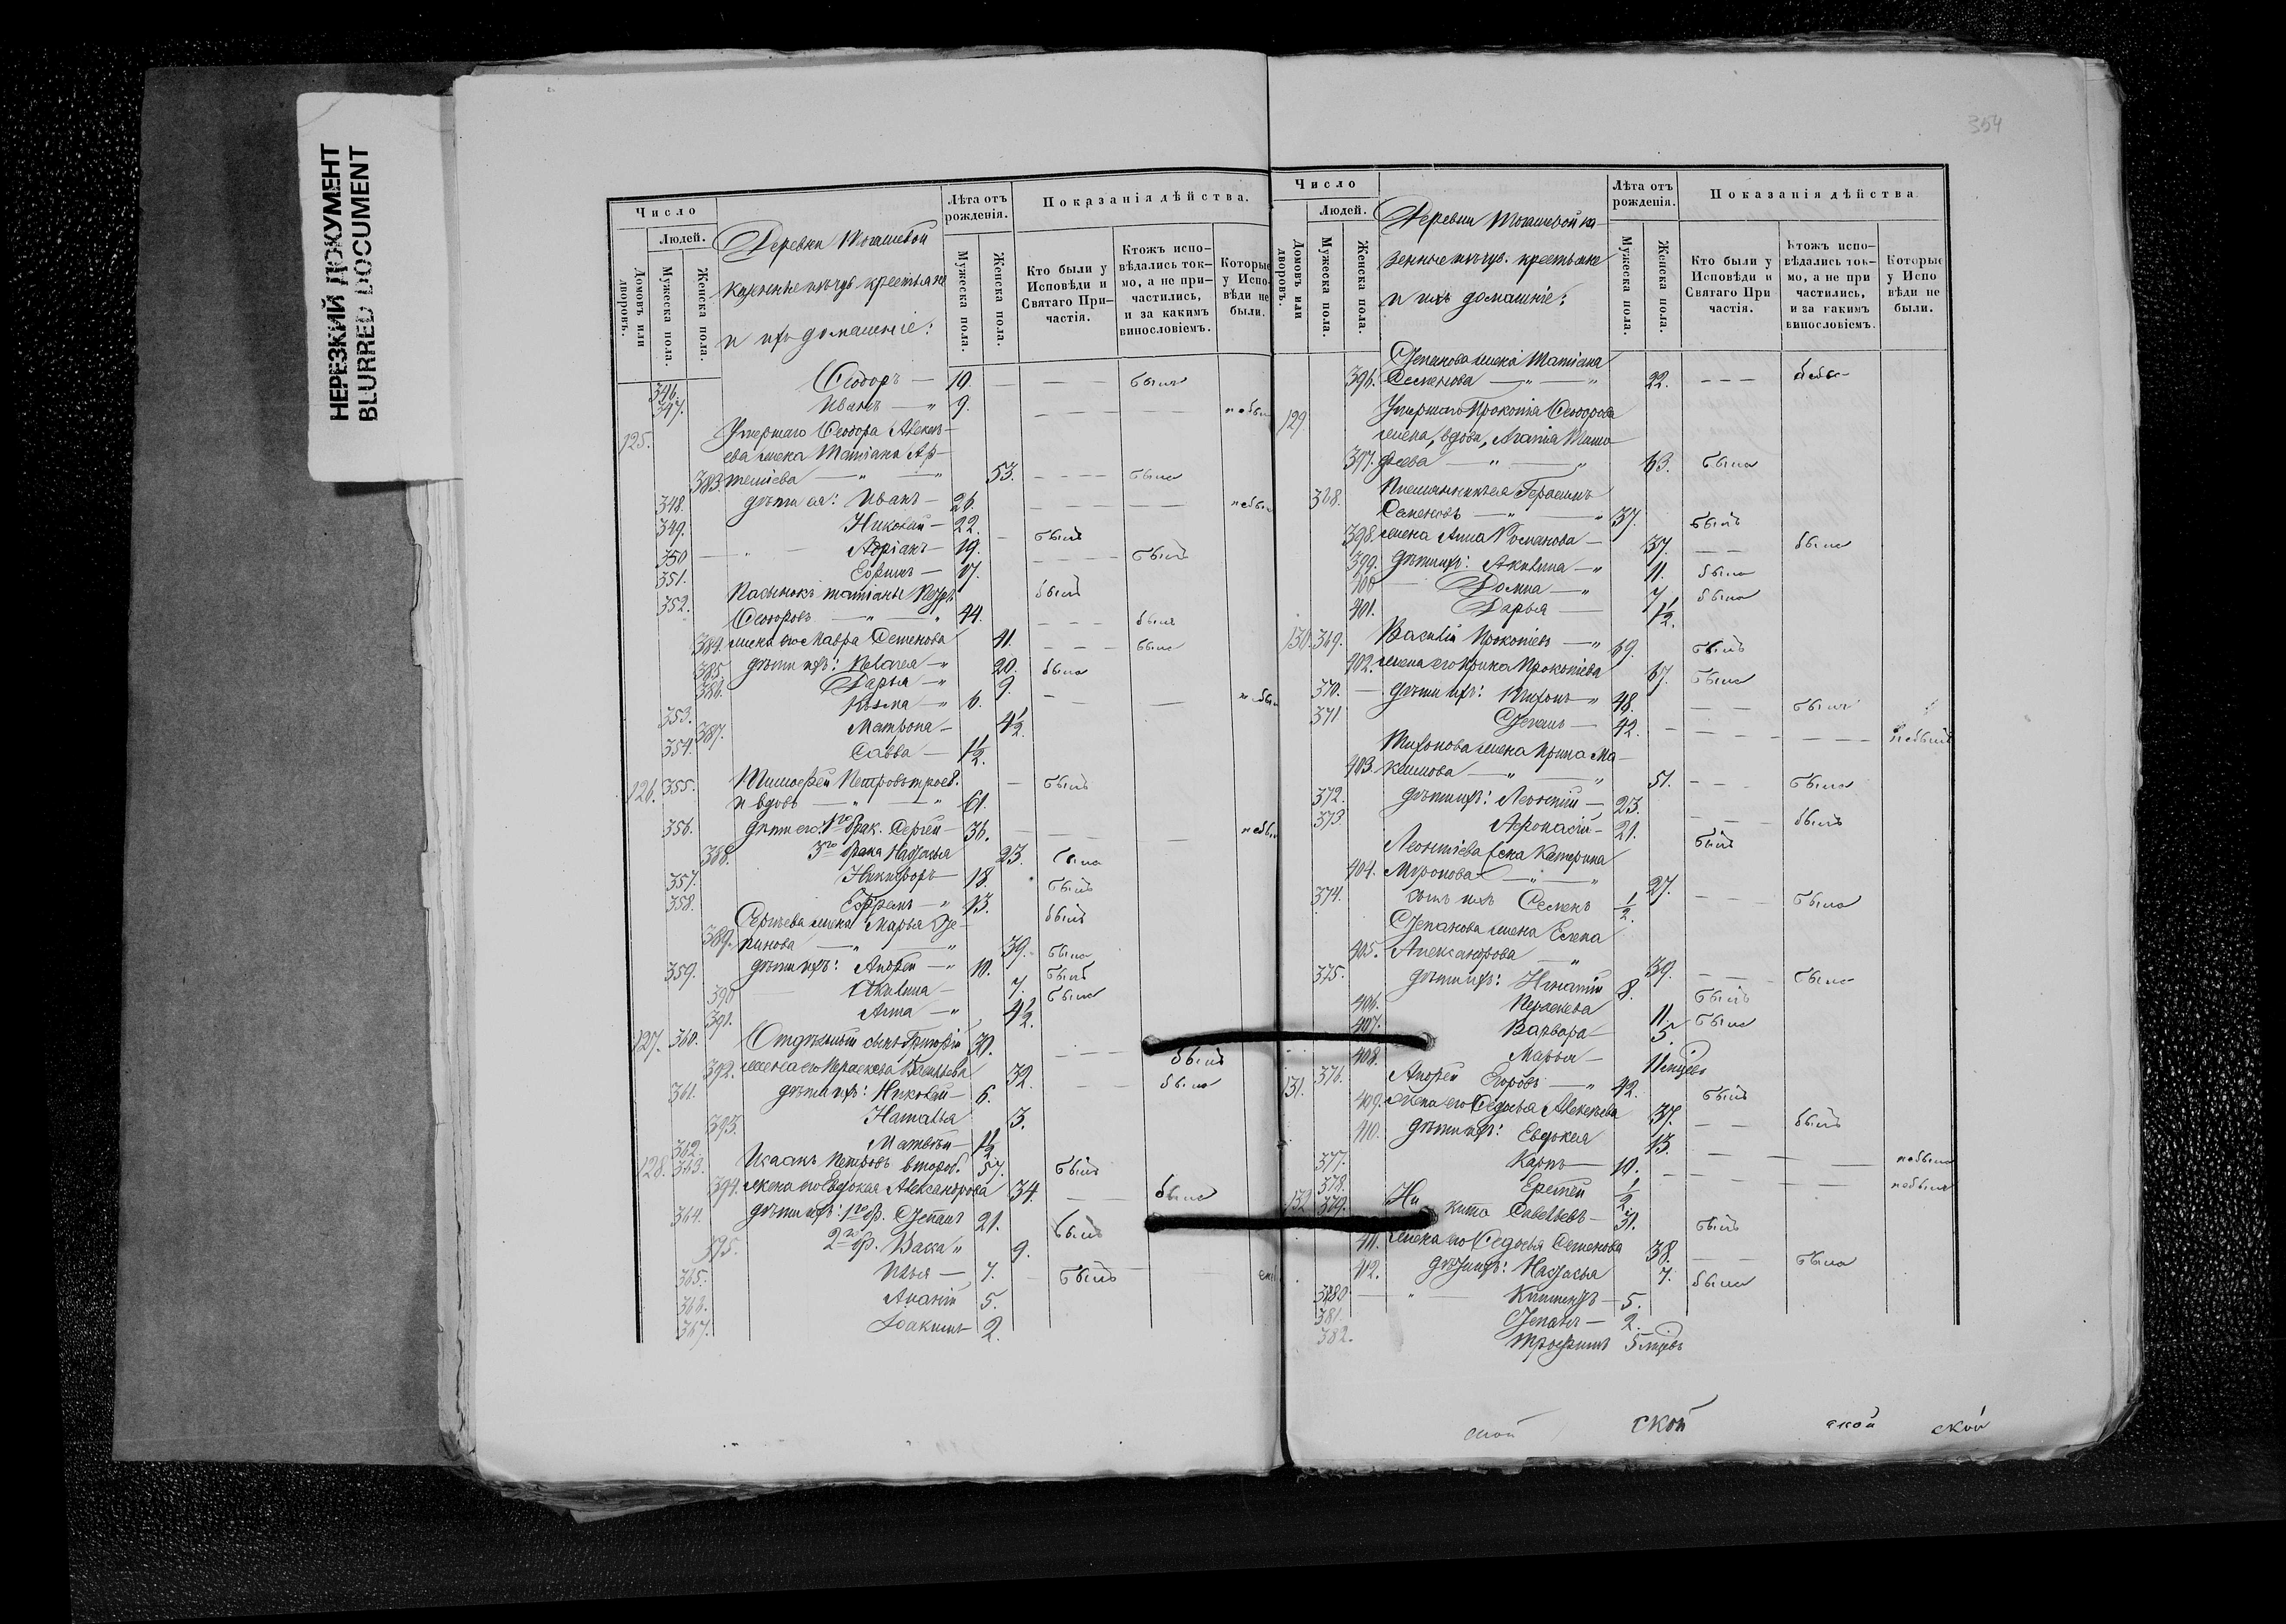 НЕРЕЗКИЙ ДОКУМЕНТ
BLURRED DOCUMENT
Число
Людей.
Домовъ или дворовъ.
Мужеска пола.
Женска пола.
Деревни Тюгашевой
казенные крестьяне
и ихъ домашніе:
Лѣта отъ рожденія.
Мужеска пола.
Женска пола.
Показанія дѣйства.
Кто были у Исповѣди и Святаго Причастія.
Ктожъ исповѣдались токмо, а не причастились, и за какимъ винословіемъ.
Которые у Исповѣди не были.
346. Ѳеодоръ — 10. былъ
347. Иванъ — 9. небылъ
125. Умершаго Ѳеодора Алексѣ-
ева жена Татіана Ар-
383. темiева — 53. была
348. дѣти ея: Иванъ — 26. небылъ
349. Николай — 22. былъ
350 Адріанъ — 19. былъ
351. Ефимъ — 17. былъ
352. Пасынокъ Татіаны Петръ
Ѳеодоровъ — 44. былъ
384. жена его Мавра Семенова 41. была
385. дѣти ихъ: Пелагея — 20. была
386. Дарья — 9.
353. Козма — 6. небылъ
387. Матрона — 4½.
354. Савва — 1½.
126. 355. Тимоѳей Петровъ троеб.
и вдовъ — 61. былъ
356. дѣти его: 1го брак. Сергѣй — 36. небылъ
388. 3го брака Настасья 23. была
357. Никифоръ — 18. былъ
358. Ефремъ — 13. былъ
Сергѣева жена Марья Сте-
389. панова — 39. была
359. дѣти ихъ: Андрей — 10. былъ
390 Акилина — 7. была
391. Анна — 4½.
127. 360. Отдѣльный сынъ Григорій 30. былъ
392. жена его Параскева Васильева 32. была
361. дѣти ихъ: Николай — 6.
393. Наталья 3.
362. Матвѣй — 1½
128. 363. Исаакъ Петровъ второб. 57. былъ
394. жена его Евдокія Александрова 34. была
364. дѣти ихъ: 1го бр. Степанъ 21. былъ
395. 2го бр. Васса 9.
365. Илья — 7. былъ
366. Ананій 5.
367. Іоакимъ 2.
354
Число
Людей.
Домовъ или дворовъ.
Мужеска пола.
Женска пола.
Деревни Тюгашевой ка-
зенные крестьяне
и ихъ домашніе:
Лѣта отъ рожденія.
Мужеска пола.
Женска пола.
Показанія дѣйства
Кто были у Исповѣди и Святаго При частія.
Ктожъ исповѣдались токмо, а не при частились, и за какимъ винословіемъ.
Которые у Испо вѣди не были.
Степанова жена Татіана
396. Семенова — 22. была
129. Умершаго Прокопія Ѳеодорова
жена, вдова, Агапія Тимо
397. ѳеева — 63. была
368. Племянникъ ея Герасимъ
Семеновъ — 37. былъ
398. жена Анна Романова — 37. была
399. дѣти ихъ: Акилина — 11. была
400 Домна — 7. была
401. Дарья — 1½.
130. 369. Василій Прокопіевъ — 69. былъ
402. жена его Ирина Прокопіева 67. была
370. дѣти ихъ: Тихонъ — 48. былъ
371 Степанъ — 42. небылъ
Тихонова жена Ирина Ма-
403. ксимова — 51. была
372. дѣти ихъ: Леонтій — 23. былъ
373. Афонасій — 21. былъ
Леонтіева жена Катерина
404. Миронова — 27. была
374. сынъ ихъ Семенъ ½.
Степанова жена Елена
405. Александрова 39. была
375. дѣти ихъ: Игнатій 8. былъ
406. Параскева 11. была
407. Варвара 5.
408. Марья — 11 мѣсяц.
131. 376. Андрей Егоровъ — 42. былъ
409. жена его Ѳедосья Алексѣева 37. была
410. дѣти ихъ: Евдокея 13. небыла
377. Карпъ — 10. небылъ
378. Еремѣй ½
132 379. Никита Савельевъ — 31. былъ
411. жена его Ѳедосья Семенова 38. была
412. дѣти ихъ: Настасья 7. была
380 Климентъ — 5.
381. Степанъ — 2.
382. Трофимъ 5 мѣсяц.
ской ской ской ской